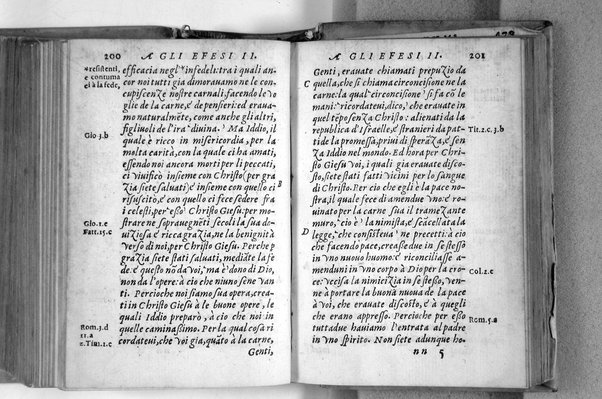 200 A GLI EFESI II.
*resistenti,
e contuma
ci à la fede,
Gio 3.b
Gio.1.c
Fatt.15.c
Rom.3.d
11.a
2.Tim.1.c
efficacia negl'*infedeli: tra i quali an-
cor noi tutti gia dimorauamo ne le con-
cupiscenze nostre carnali, facendo le vo
glie de la carne, & de pensieri: ed eraua-
mo naturalmēte, come anche gli altri,
figliuoli de l'ira diuina. Ma Iddio, il
quale è ricco in misericordia, per la
molta carità, con la quale ci ha amati,
essendo noi ancora morti per li peccati,
ci viuificò insieme con Christo (per gra
zia siete saluati) & insieme con quello ci
B
risuscitò, & con quello ci fece sedere fra
i celesti, per esso Christo Giesu: per mo
strare ne soprauegnēti secoli la sua do-
uiziosa & ricca grazia, ne la benignità
verso di noi, per Christo Giesu. Perche p
grazia siete stati saluati, mediāte la fe
de: & questo nō da voi, ma è dono di Dio,
non da l'opere: à cio che niuno sene van
ti. Percioche noi siamo sua opera, crea-
ti in Christo Giesu à le buone opere, le
quali Iddio preparò, à cio che noi in
quelle caminassimo. Per la qual cosa ri
cordateui, che voi gia, quāto à la carne,
Genti,
A GLI EFESI II. 201
Genti, erauate chiamati prepuzio da
C
quella, che si chiama circoncisione ne la
carne: la qual'circoncisione si fa cō le
mani: ricordateui, dico, che erauate in
quel tēpo senza Christo: alienati da la
republica d'Israelle, & stranieri da pat-
Tit.2.c.3.b
ti de la promessa, priui di sperāza, & sen
za Iddio nel mondo. Ed hora per Chri-
sto Giesu voi, i quali gia erauate disco-
sto, siete stati fatti vicini per lo sangue
di Christo. Per cio che egli è la pace no-
stra, il quale fece di amendue vno: & ro
uinato per la carne sua il tramezante
muro, cio è la nimistà, & scācellata la
D
legge, che consisteua ne precetti: à cio
che facendo pace, creasse due in se stesso
in vno nuouo huomo: & riconciliasse a-
menduni in vno corpo à Dio per la cro-
Col.2.c
ce: vccisa la nimicizia in se stesso, ven-
ne à portare la buona nuoua de la pace
à voi, che erauate discosto, & à quegli
che erano appresso. Percioche per esso
Rom.5.a
tuttadue hauiamo l'entrata al padre
in vno spirito. Non siete adunque ho-
nn 5